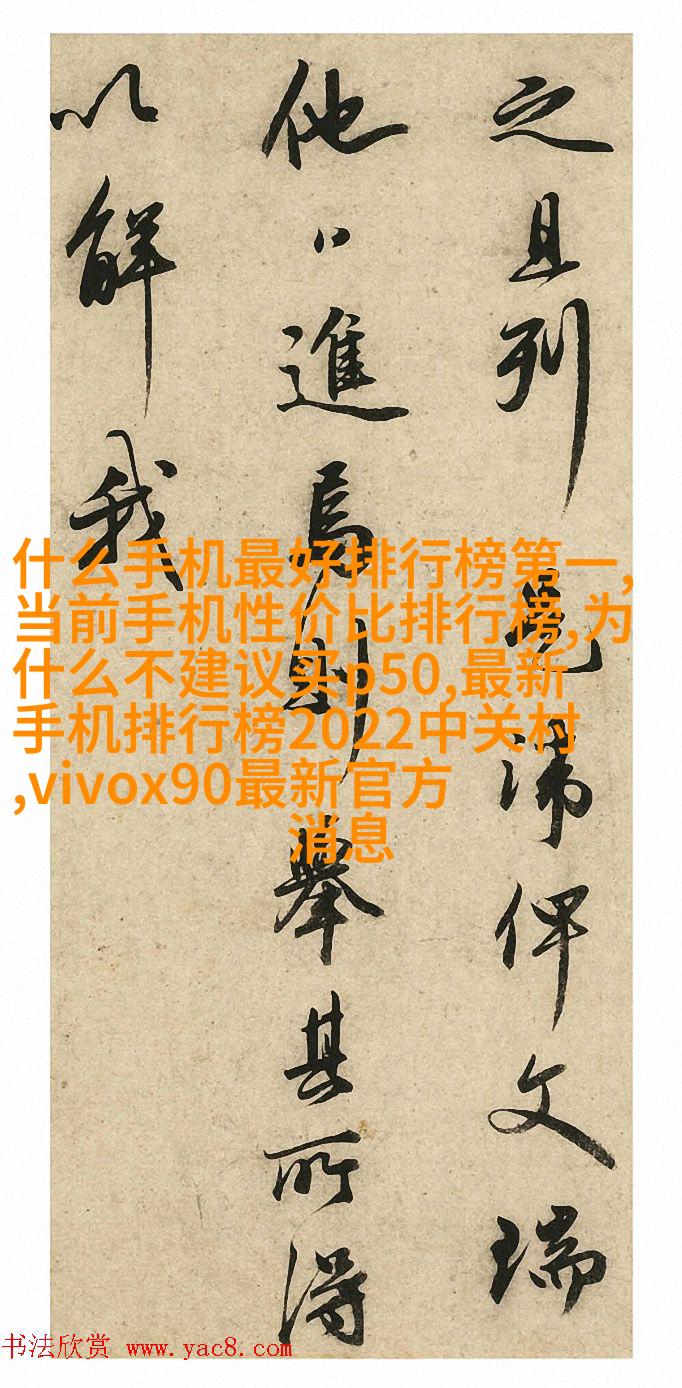 之且列俾文瑞
他〻進焉則舉其所得
以解我
什么手机最好排行榜第一,
当前手机性价比排行榜,为
什么不建议买p50,最新
手机排行榜2022中关村
,vivox90最新官方
消息
书法欣赏 www.yac8.com